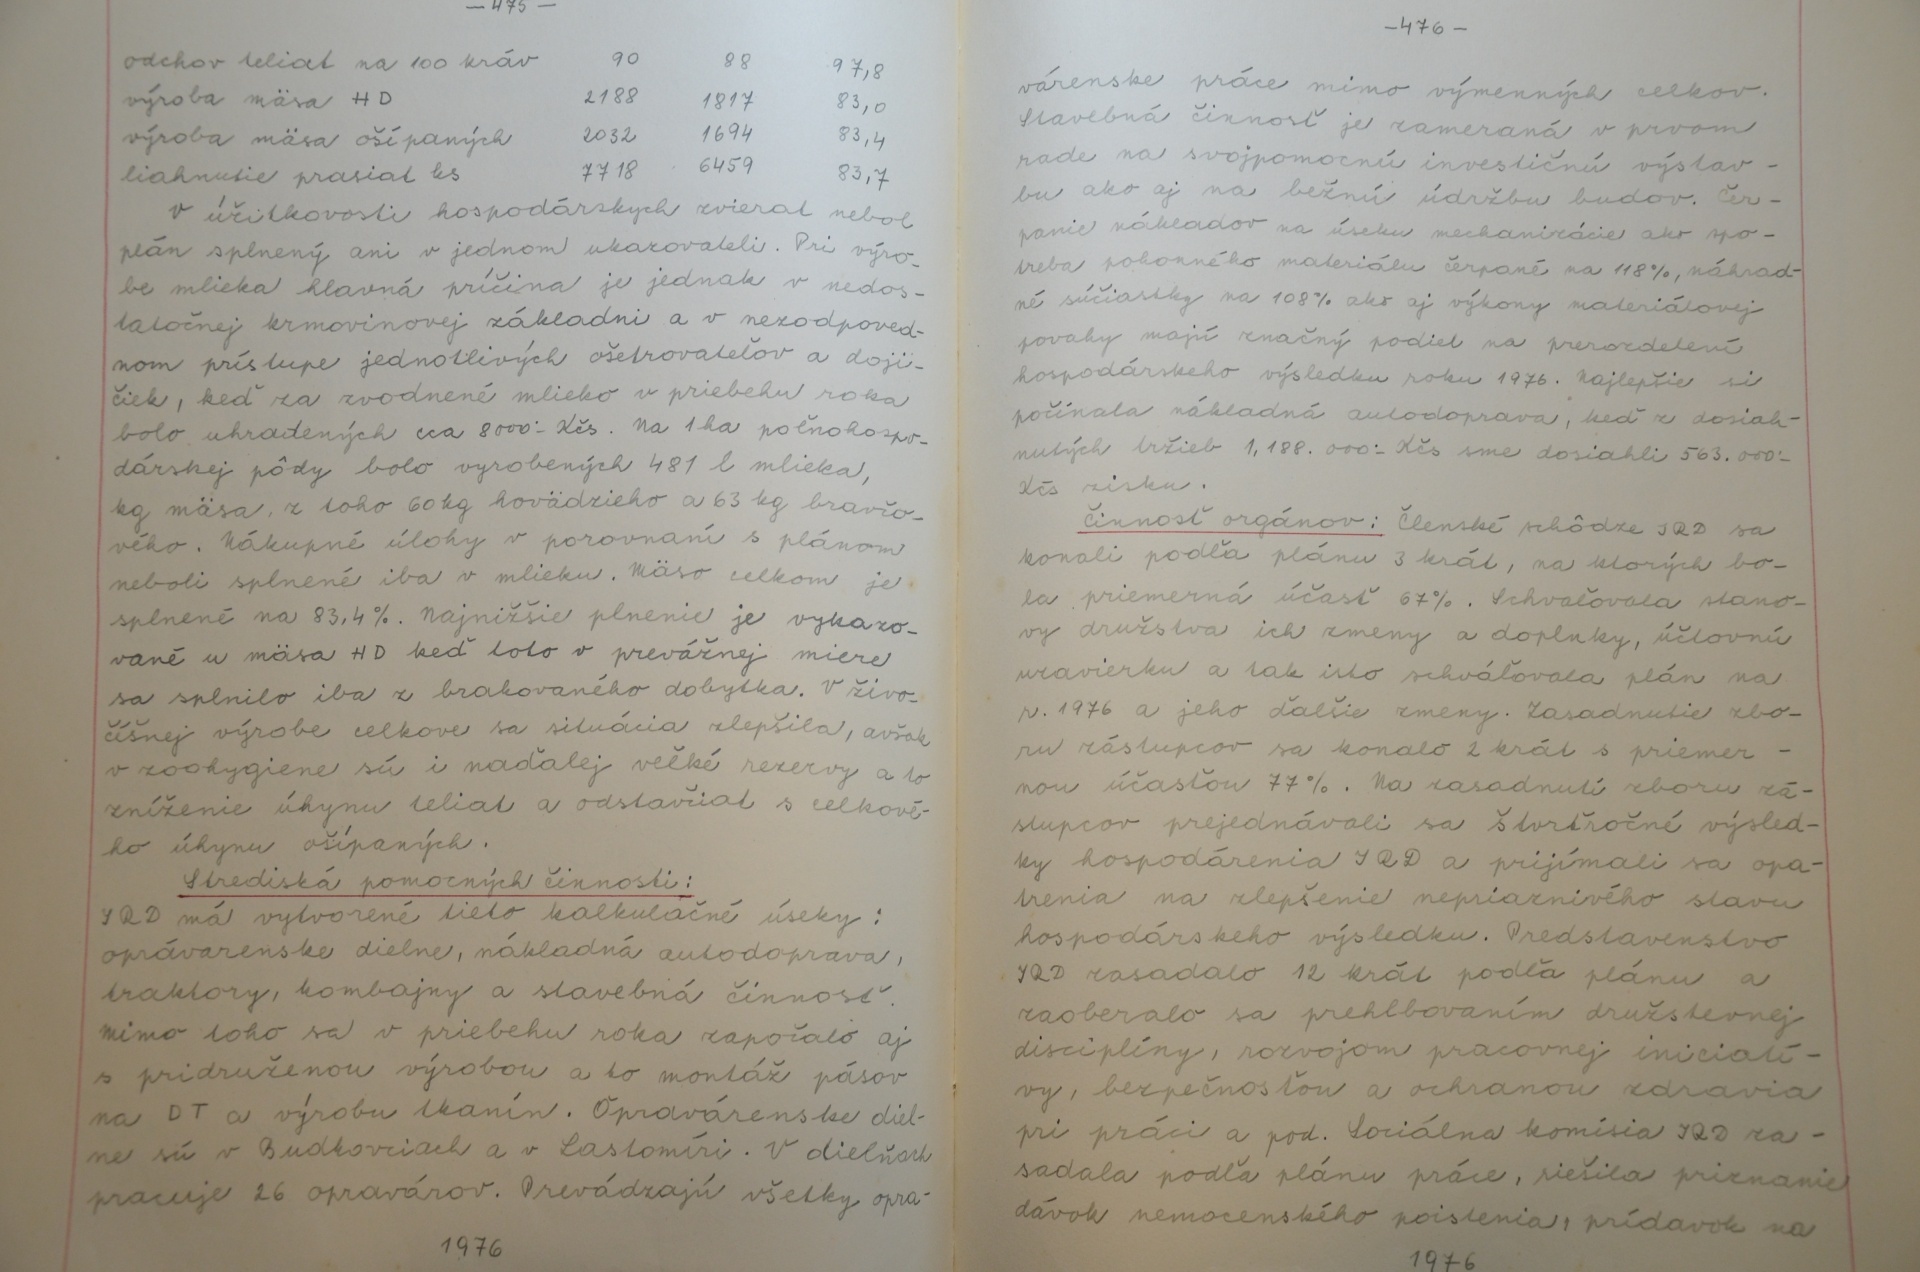 —475—
odchov teliat na 100 kráv 90 88 97,8
výroba mäsa HD 2188 1817 83,0
výroba mäsa ošípaných 2032 1694 83,4
liahnutie prasiat ks 7718 6459 83,7
V úžitkovosti hospodárskych zvierat nebol
plán splnený ani v jednom ukazovateli. Pri výro-
be mlieka hlavná príčina je jednak v nedos-
tatočnej krmovinovej základni a v nezodpoved-
nom prístupe jednotlivých ošetrovateľov a doji-
čiek, keď za zvodnené mlieko v priebehu roka
bolo uhradených cca 8000.- Kčs. Na 1 ha poľnohospo-
dárskej pôdy bolo vyrobených 481 l mlieka,
kg mäsa, z toho 60 kg hovädzieho a 63 kg bravčo-
vého. Nákupné úlohy v porovnaní s plánom
neboli splnené iba v mlieku. Mäso celkom je
splnené na 83,4%. Najnižšie plnenie je vykazo-
vané u mäsa HD keď toto v prevážnej miere
sa splnilo iba z brakovaného dobytka. V živo-
číšnej výrobe celkove sa situácia zlepšila, avšak
v zoohygiene sú i naďalej veľké rezervy a to
zníženie úhynu teliat a odstavčiat s celkové-
ho úhynu ošípaných.
Strediská pomocných činnosti:
JRD má vytvorené tieto kalkulačné úseky:
oprávarenske dielne, nákladná autodoprava,
traktory, kombajny a stavebná činnosť.
Mimo toho sa v priebehu roka započalo aj
s pridruženou výrobou a to montáž pásov
na DT a výrobu tkanín. Opravárenske diel-
ne sú v Budkovciach a v Lastomíri. V dielňach
pracuje 26 opravárov. Prevádzajú všetky opra-
1976
—476—
várenske práce mimo výmenných celkov.
Stavebná činnosť je zameraná v prvom
rade na svojpomocnú investičnú výstav-
bu ako aj na bežnú údržbu budov. Čer-
panie nákladov na úseku mechanizácie ako spo-
treba pohonného materiálu čerpané na 118%, náhrad-
né súčiastky na 108% ako aj výkony materiálovej
povahy majú značný podiel na prerozdelení
hospodárskeho výsledku roku 1976. Najlepšie si
počínala nákladná autodoprava, keď z dosiah-
nutých tržieb 1,188.000.- Kčs sme dosiahli 563.000.-
Kčs zisku.
Činnosť orgánov: Členské schôdze JRD sa
konali podľa plánu 3 krát, na ktorých bo-
la priemerná účasť 67%. Schvaľovala stano-
vy družstva ich zmeny a doplnky, účtovnú
uzavierku a tak isto schváľovala plán na
r. 1976 a jeho ďalšie zmeny. Zasadnutie zbo-
ru zástupcov sa konalo 2 krát s priemer-
nou účasťou 77%. Na zasadnutí zboru zá-
stupcov prejednávali sa štvrťročné výsled-
ky hospodárenia JRD a prijímali sa opa-
trenia na zlepšenie nepriaznivého stavu
hospodárskeho výsledku. Predstavenstvo
JRD zasadalo 12 krát podľa plánu a
zaoberalo sa prehlbovaním družstevnej
disciplíny, rozvojom pracovnej iniciatí-
vy, bezpečnosťou a ochranou zdravia
pri práci a pod. Sociálna komísia JRD za-
sadala podľa plánu práce, riešila priznanie
dávok nemocenského poistenia, prídavok na
1976